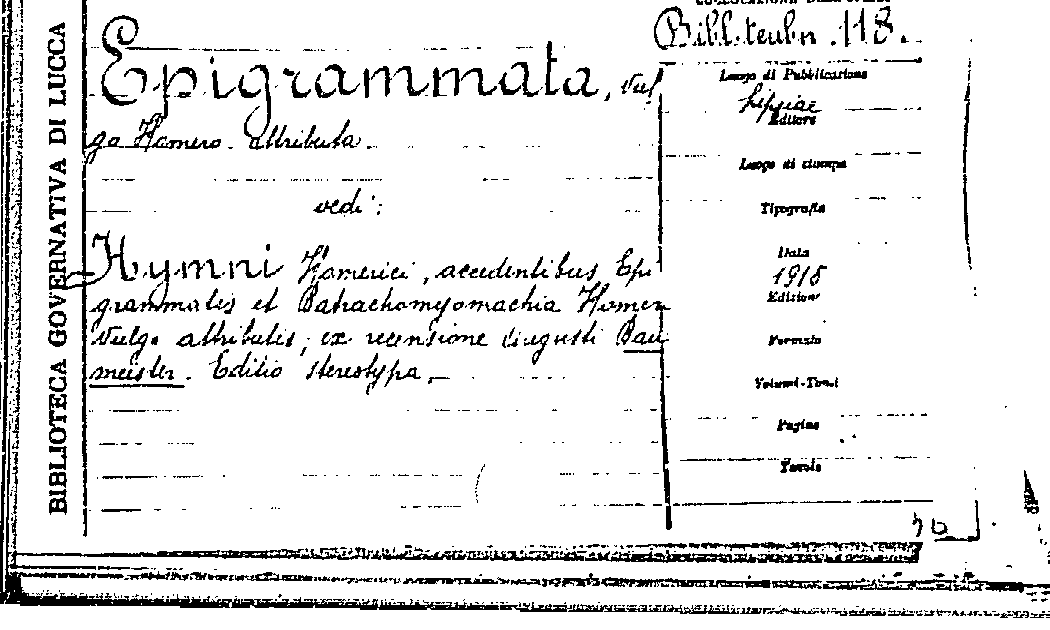 BIBLIOTECA GOVERNATIVA DI LUCCA
Bibl. teubn. 118.
Epigrammata, vul
go Homero attributa.
vedi:
Hymni Homerici, accedentibus Epi
grammatis et Batrachomyomachia Homero
vulgo attributis, ex recensione Augusti Bau
meister. Editio stereotypa.
Luogo di Pubblicazione
Lipsiae
Editore
Luogo di stampa
Tipografia
Data
1915
Edizione
Formato
Volumi-Tomi
Pagine
Tavole